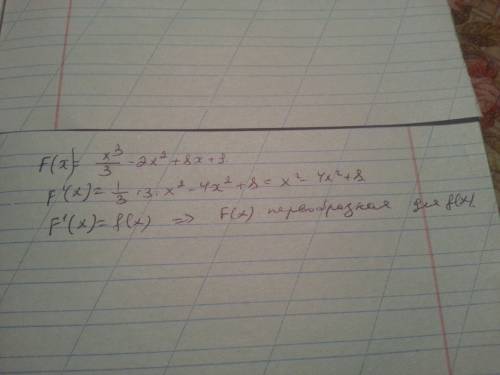 F(x) = x³/3 - 2x² + 8x + 3
F'(x) = 1/3 · 3 · x² - 4x² + 8 = x² - 4x² + 8
F'(x) = f(x) ⇒ F(x) первообразная для f(x).